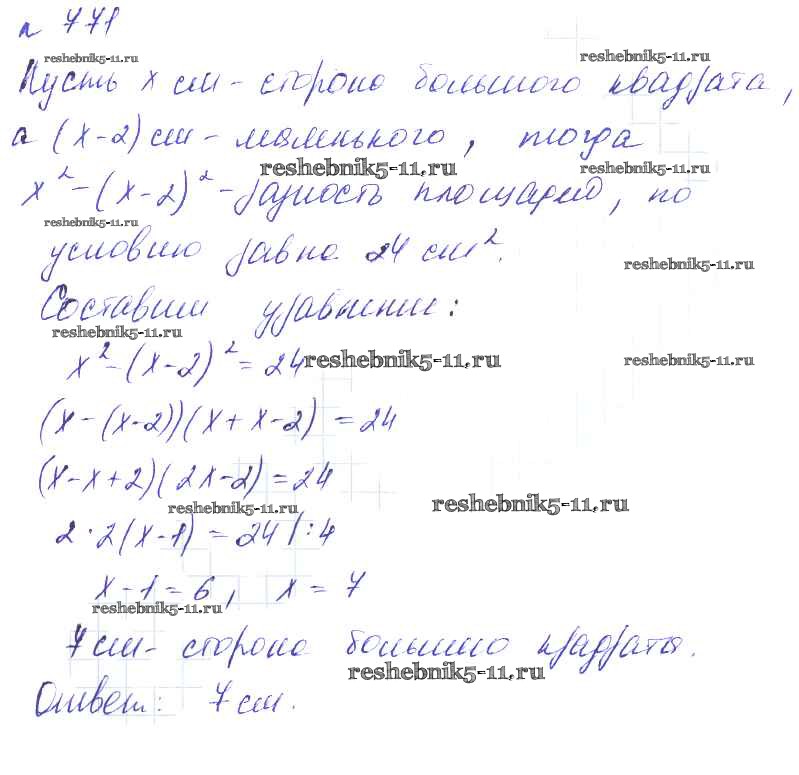 n 771
reshebnik5-11.ru reshebnik5-11.ru
Пусть x см - сторона большого квадрата,
а (x-2) см - маленького, тогда
reshebnik5-11.ru reshebnik5-11.ru
x² - (x-2)² - разность площадей, по
reshebnik5-11.ru
условию равна 24 см².
reshebnik5-11.ru
Составим уравнение:
reshebnik5-11.ru
x² - (x-2)² = 24
reshebnik5-11.ru reshebnik5-11.ru
(x - (x-2))(x + x-2) = 24
(x - x + 2)(2x-2) = 24
reshebnik5-11.ru reshebnik5-11.ru
2 · 2(x-1) = 24 | : 4
x - 1 = 6, x = 7
reshebnik5-11.ru
7 см - сторона большого квадрата.
reshebnik5-11.ru
Ответ: 7 см.